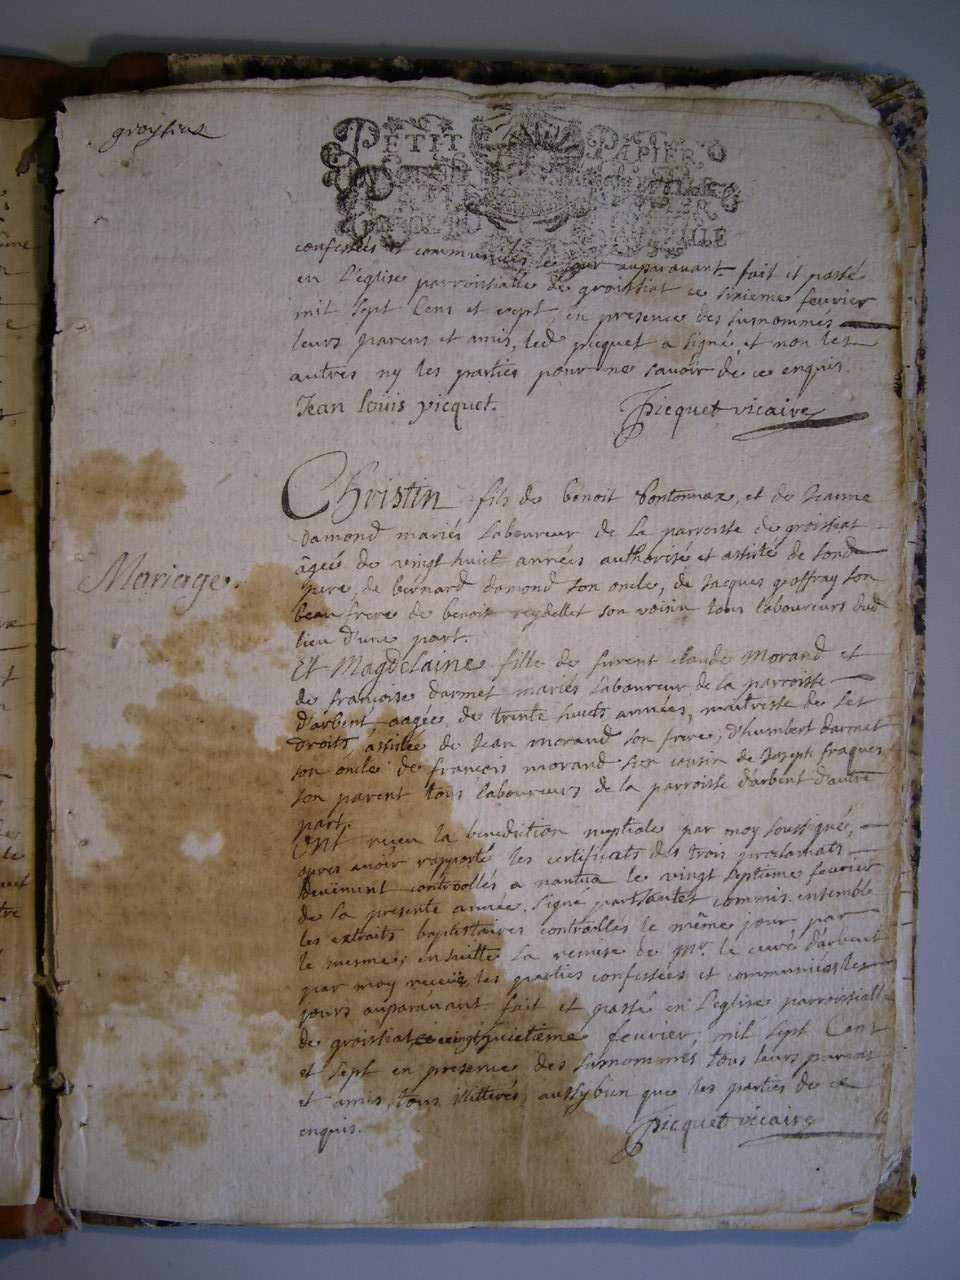 groyssiaz
PETIT PAPIER
confessées et communiées le jour auparavant fait et passé
en l'églize parroissialle de groissiat ce sixieme fevrier
mil sept Cens et sept, en presence des susnommés
leurs parens et amis, led picquet a signé, et non les
autres ny les parties pour ne savoir de ce enquis.
Jean Louis picquet.
Picquet vicaire
Christin fils de benoit pontonnax, et de Jeanne
damond mariés Laboureur de la parroisse de groissiat
âgée de vingt huit années authorisé et assisté de sond
pere, de bernard damond son oncle, de Jacques goffray son
beau frere de benoit reydellet son voisin tous laboureurs dud
lieu d'une part.
Mariage.
Et Magdelaine fille de furent claude Morand et
de françoise darmet mariés laboureur de la parroisse
d'arbent aagée de trente années, maitresse de ses
droits, assistée de Jean morand son frere, d'humbert darmet
son oncle de françois morand son cousin de Joseph fraques
son parent tous laboureurs de la parroisse d'arbent d'autre
part.
Ont reçeu la benediction nuptiale par moy soussigné,
apres avoir rapporté les certificats des trois proclamats
deuëment controollés a nantua le vingt septieme fevrier
de la presente année. signé commis ensemble
les extraits baptistaires controllés le même jour par
le mesme; ensuitte la remise de Mr. le curé d'arbent
par moy receüe, les parties confessées et communiées les
jours auparavant fait et passé en l'eglise parroissialle
de groissiat ce vingt huictieme fevrier, mil sept Cent
et sept en presence des susnommés tous leurs parens
et amis, tous illitterés, aussybien que les parties de ce
enquis.
Picquet vicaire